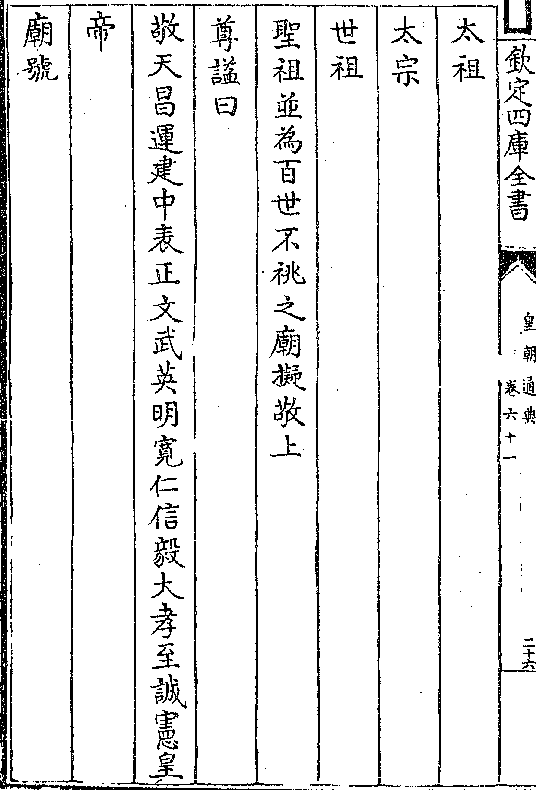 欽定四庫全書
皇朝通典
卷六十一
二十六
太祖
太宗
世祖
聖祖並為百世不祧之廟擬敬上
尊諡曰
敬天昌運建中表正文武英明寛仁信毅大孝至誠憲皇
帝
廟號